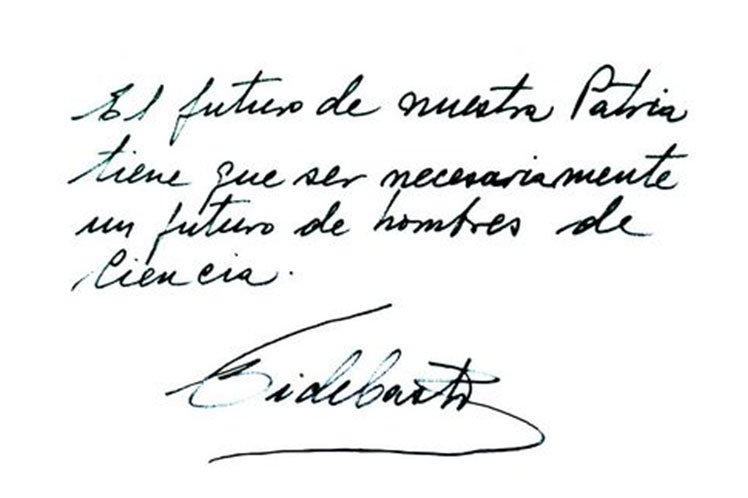 El futuro de nuestra Patria
tiene que ser necesariamente
un futuro de hombres de
Ciencia.